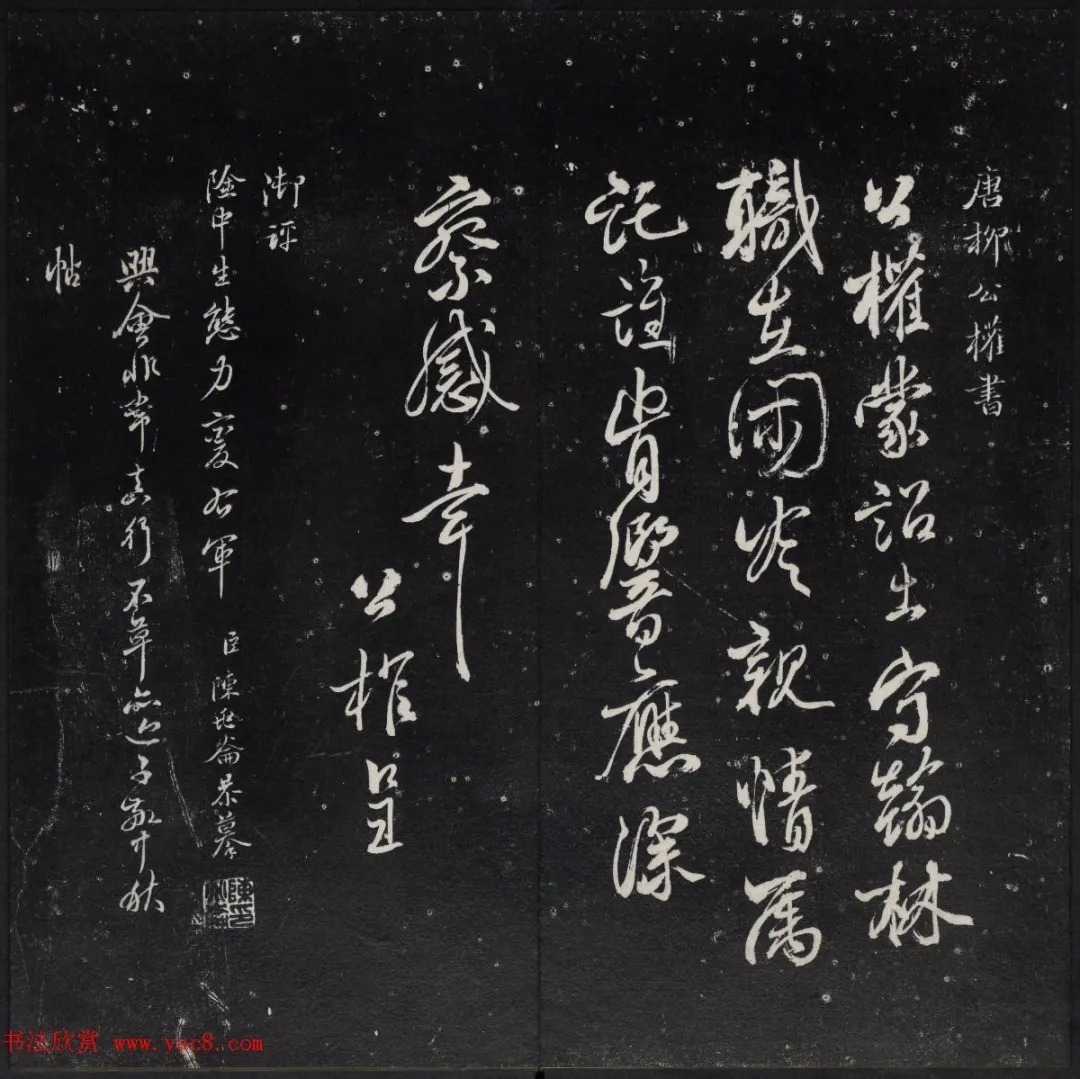 唐柳公權書
公權蒙詔出守翰林
職在閑冷親情囑
託誰肯響應深
察感幸
公權呈
御評
險中生態力變右軍 臣陳兆崙恭摹
興會非常真行不草亦近子敬中秋
帖
书法欣赏 www.yac8.com